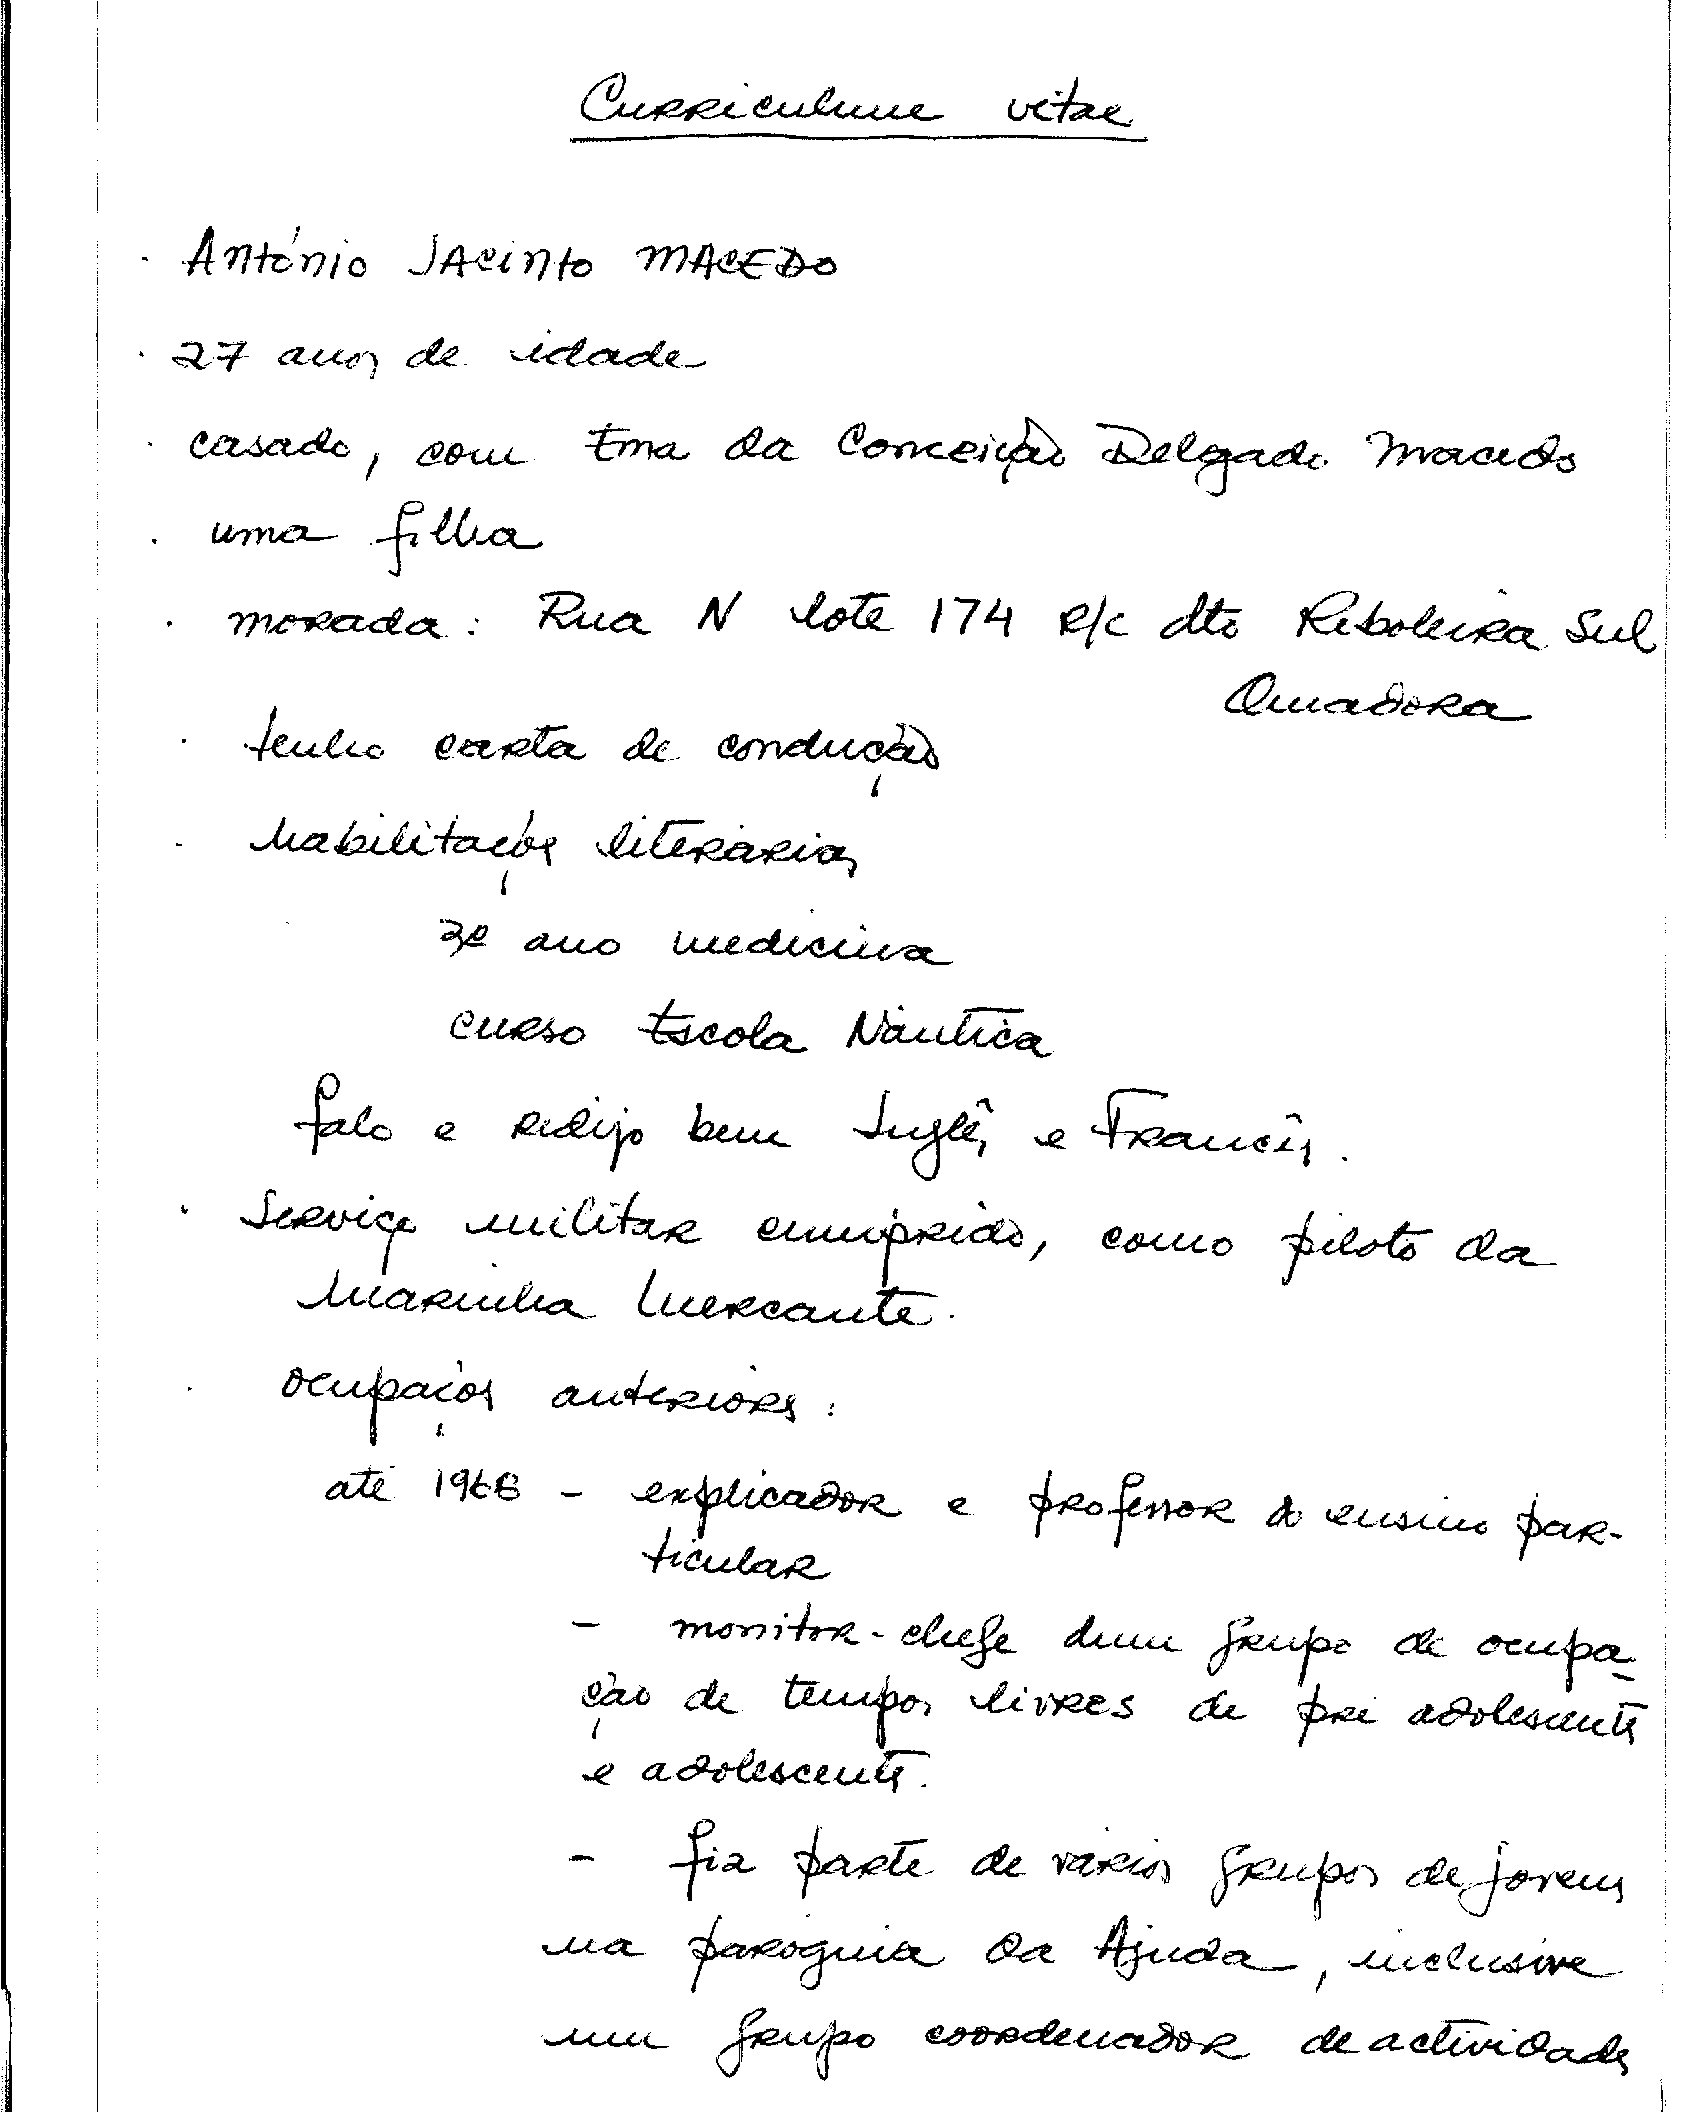 Curriculum vitae
. António Jacinto MACEDO
. 27 anos de idade
. casado, com Ema da Conceição Delgado Macedo
. uma filha
. morada: Rua N lote 174 R/c dto Reboleira Sul
Amadora
. tenho carta de condução
. habilitações literárias
2º ano medicina
curso Escola Náutica
falo e redijo bem Inglês e Francês.
. Serviço militar cumprido, como piloto da
Marinha Mercante.
. ocupações anteriores:
até 1968 - explicador e professor do ensino par-
ticular
- monitor-chefe dum grupo de ocupa-
ção de tempos livres de pré adolescentes
e adolescentes.
- fiz parte de vários grupos de jovens
na paróquia da Ajuda, inclusive
num grupo coordenador de actividades